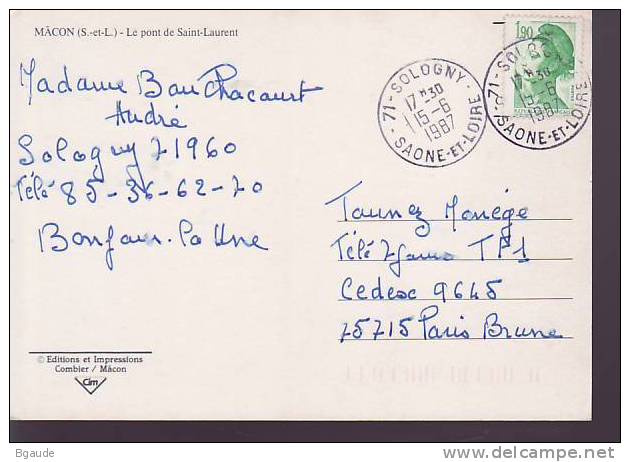 MÂCON (S.-et-L.) - Le pont de Saint-Laurent
Madame Bouchacourt
André
Sologny 71960
Télé 85-36-62-70
Bonjour. La Une
71 - SOLOGNY -
17 H 30
15-6
1987
SAONE-ET-LOIRE
1,90
71 - SOLOGNY
17 H 30
15-6
1987
SAONE-ET-LOIRE
Tournez Manège
Télé
TF1
Cedesc 9645
75715 Paris Brune
© Editions et Impressions
Combier / Mâcon
Cim
Bgaude
www.delcampe.net